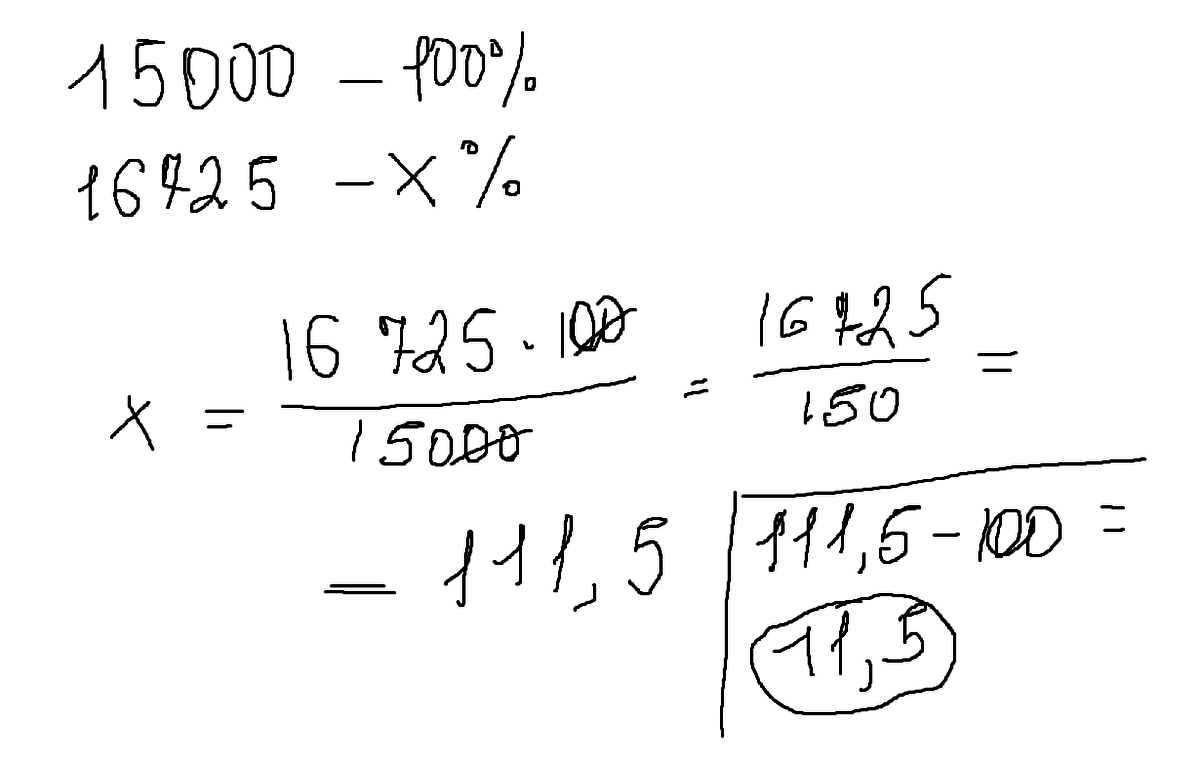 15000 – 100%
16725 – x%
x = 16 725 · 100 / 15000 = 16725 / 150 =
= 111,5
111,5 – 100 =
11,5